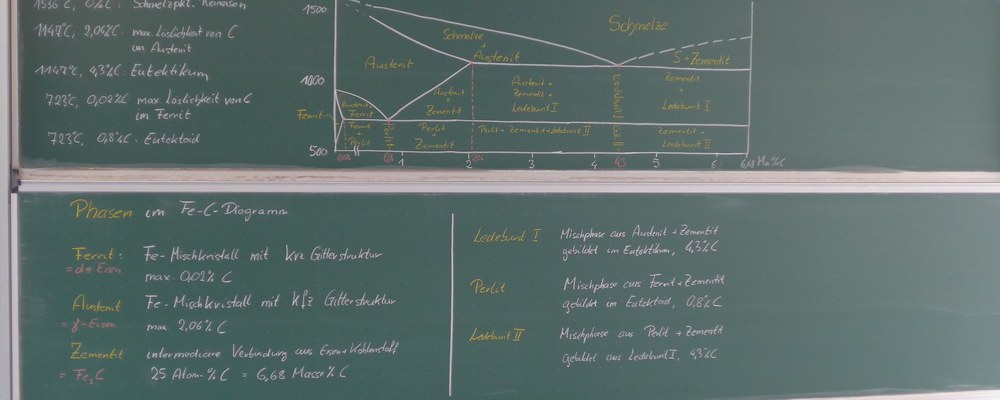 1536°C, 0%C: Schmelzpkt. Reineisen
1147°C, 2,06%C max Löslichkeit von C
im Austenit
1147°C, 4,3%C: Eutektikum
723°C, 0,02%C max Löslichkeit von C
im Ferrit
723°C, 0,8%C: Eutektoid
1500
1000
500
Schmelze
Schmelze
+
Austenit
S+Zementit
Austenit
Austenit
+
Zementit
Austenit +
Zementit +
Ledeburit I
Ledeburit I
Zementit
+
Ledeburit I
Austenit
+
Ferrit
Ferrit
Ferrit
+
Perlit
Perlit
Perlit
+
Zementit
Perlit + Zementit + Ledeburit II
Led. II
Zementit +
Ledeburit II
0,02
0,8
1
2
2,06
3
4
4,3
5
6
6,68 Ma%C
Phasen im Fe-C-Diagramm
Ferrit: Fe-Mischkristall mit krz Gitterstruktur
= α-Eisen
max. 0,02% C
Austenit Fe-Mischkristall mit kfz Gitterstruktur
= γ-Eisen max. 2,06% C
Zementit intermediäre Verbindung aus Eisen+Kohlenstoff
= Fe₃C 25 Atom-% C = 6,68 Masse% C
Ledeburit I Mischphase aus Austenit + Zementit
gebildet im Eutektikum, 4,3%C
Perlit Mischphase aus Ferrit + Zementit
gebildet im Eutektoid, 0,8%C
Ledeburit II Mischphase aus Perlit + Zementit
gebildet aus Ledeburit I, 4,3%C